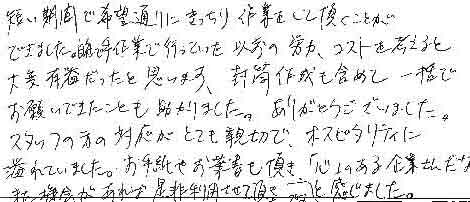 短い期間で希望通りにきっちり作業をして頂くことが
できました。臨時作業で行っていた以前の労力、コストを考えると
大変有益だったと思います、封筒作成も含めて一括で
お願いできたことも助かりました。ありがとうございました。
スタッフの方の対応がとても親切で、ホスピタリティに
溢れていました。お手紙やお葉書も頂き「心のある企業さんだな
また機会があれば是非利用させて頂き と感じました。